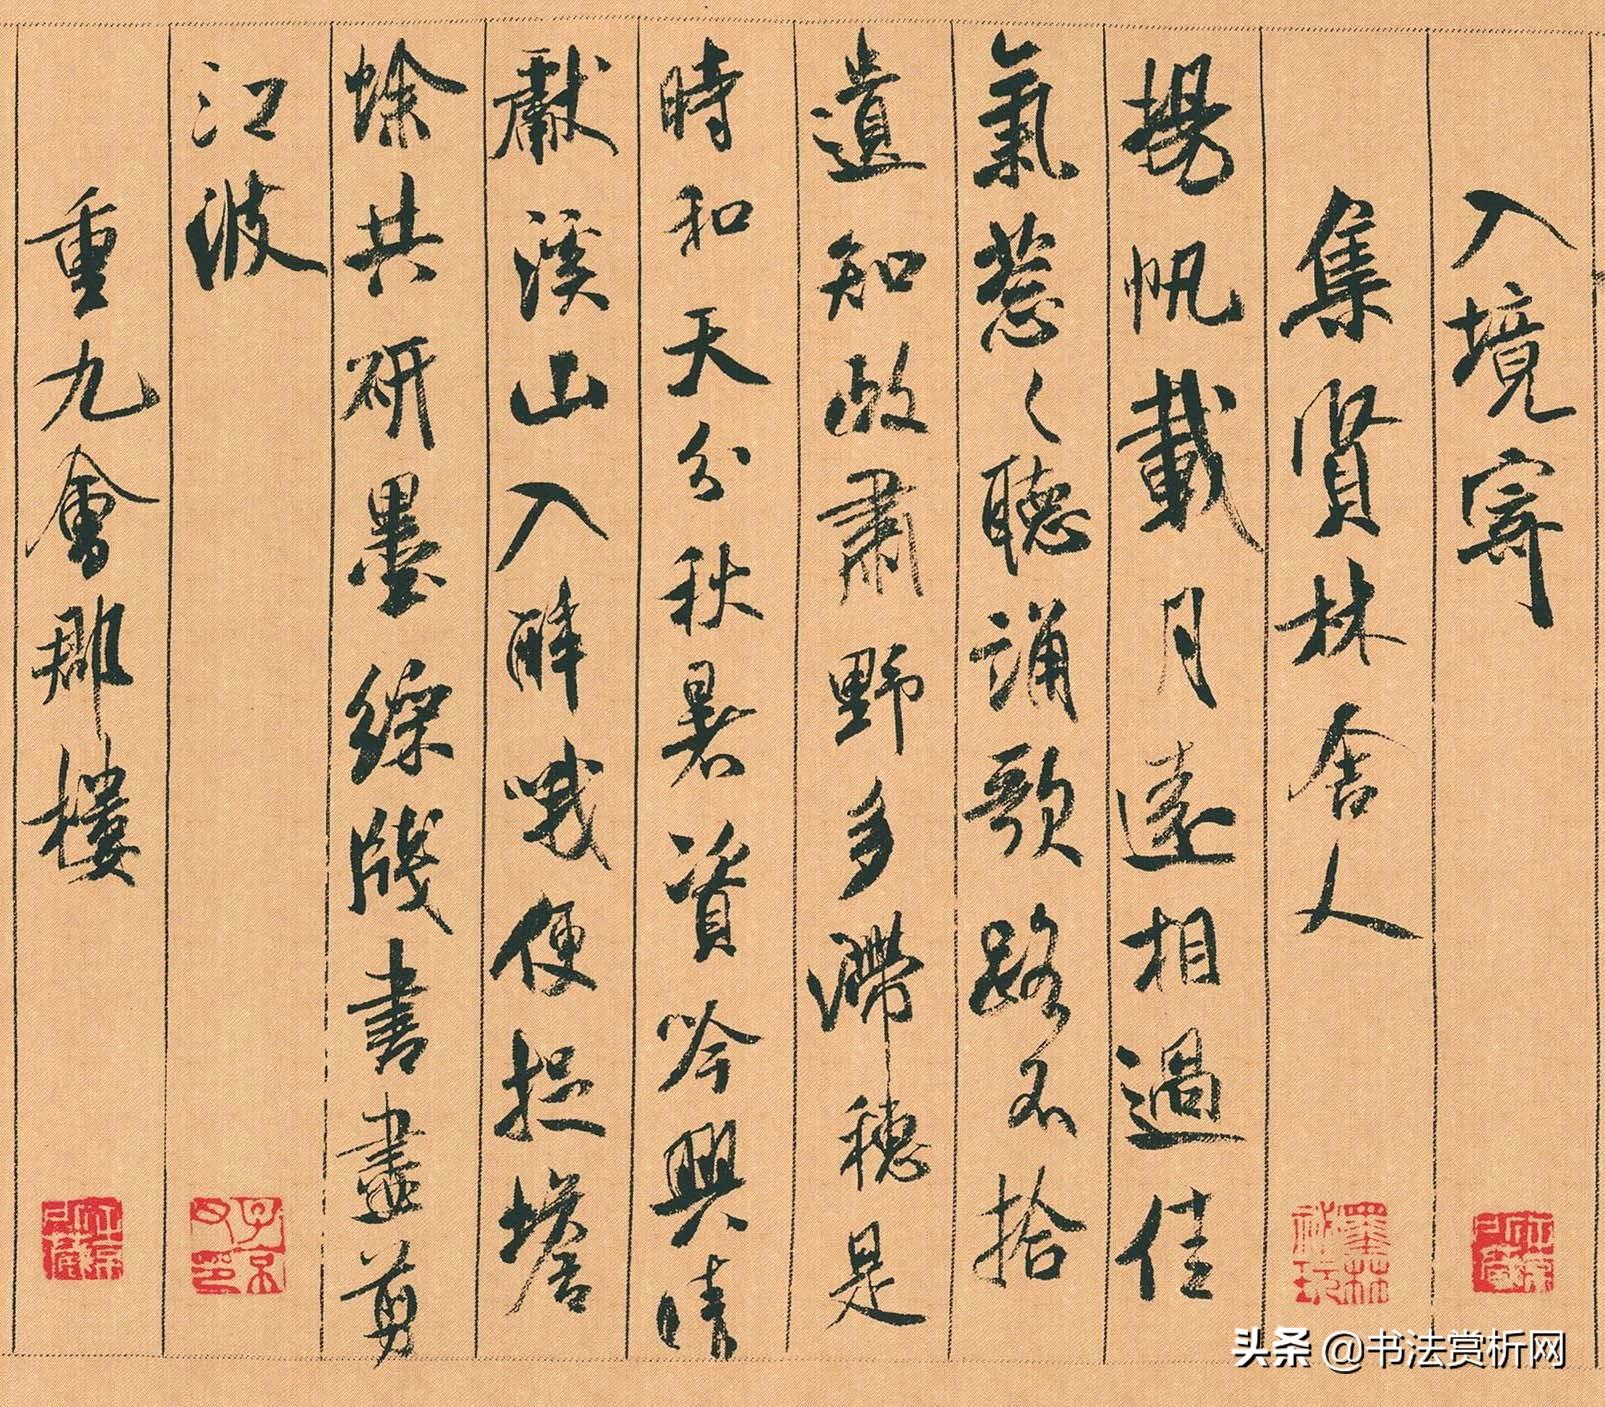 入境寄
集賢林舍人
揚帆載月遠相過佳
氣葱〻聽誦歌路不拾
遺知政肅野多滯穗是
時和天分秋暑資吟興晴
獻溪山入醉哦便捉蟾
蜍共研墨綵牋書盡剪
江波
重九會郡樓
头条 @书法赏析网